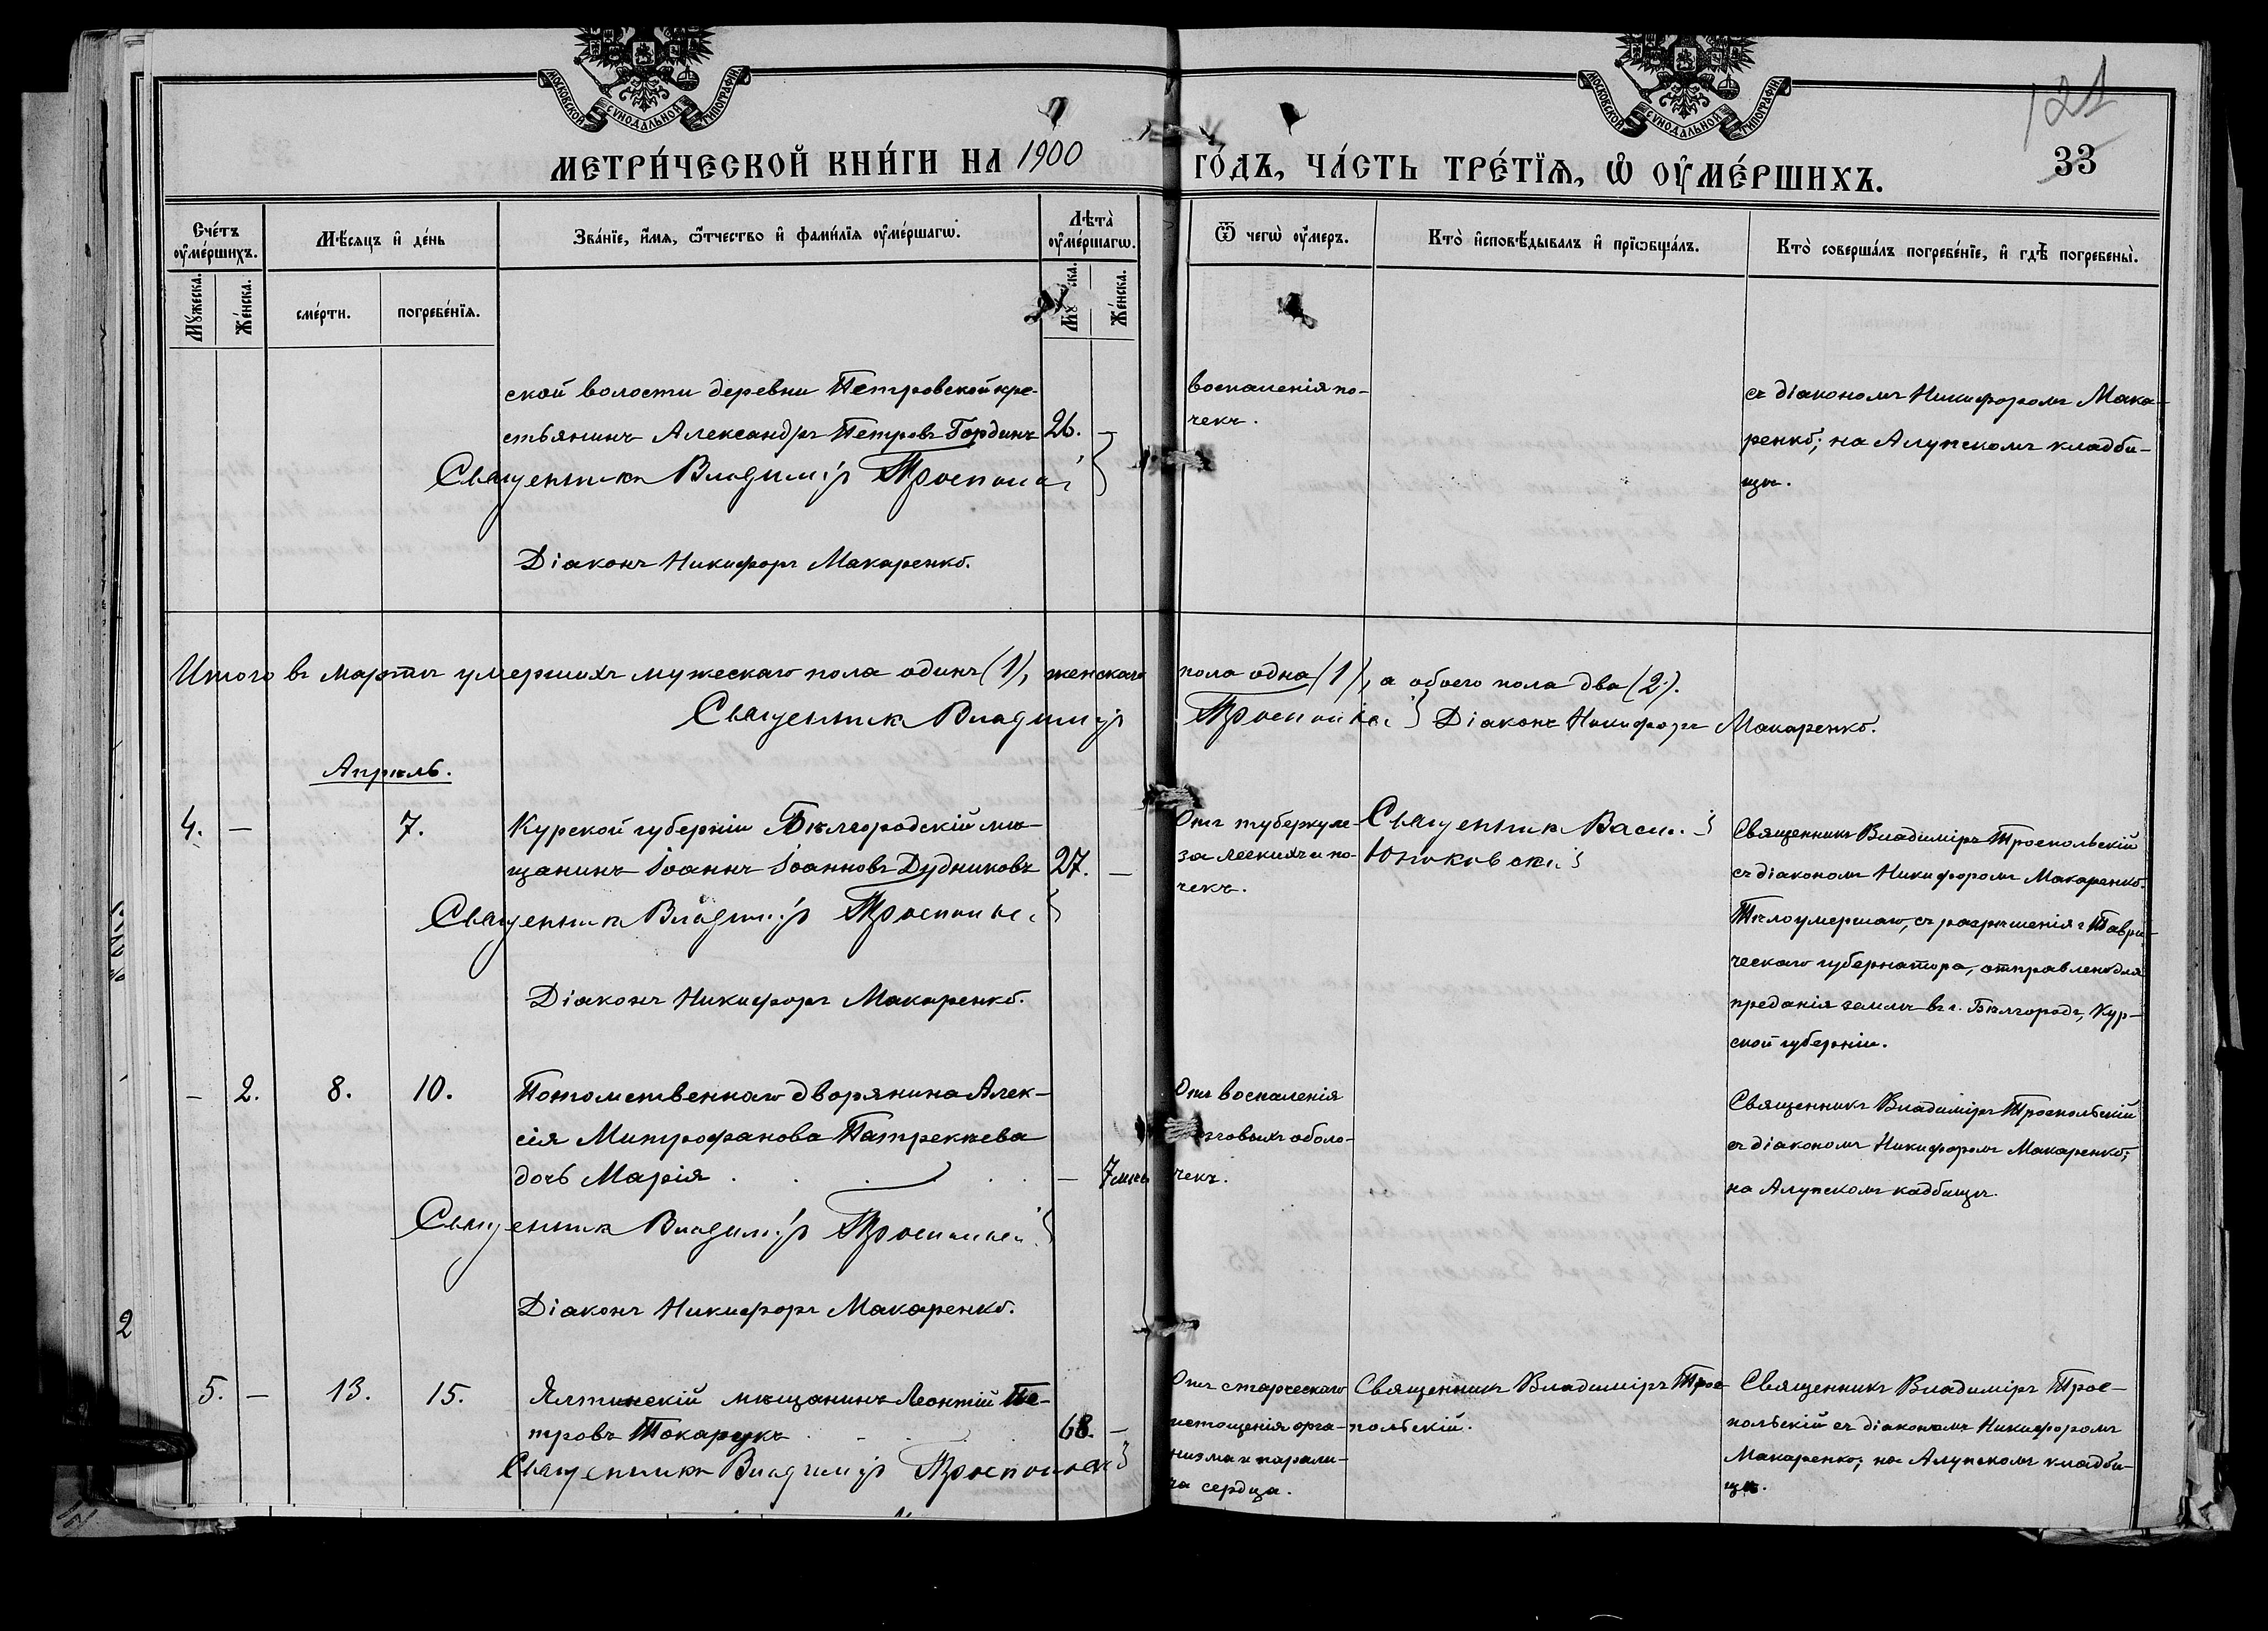 МОСКОВСКОЙ СУНОДАЛЬНОЙ ТИПОГРАФІИ.
МОСКОВСКОЙ СУНОДАЛЬНОЙ ТИПОГРАФІИ.
121
МЕТРИ́ЧЕСКОЙ КНИ́ГИ НА 1900 ГО́ДЪ, ЧА́СТЬ ТРЕ́ТЇѦ, Ѽ ОУ҆МЕ́РШИХЪ.
33
Сче́тъ оу҆ме́ршихъ.
Мѣ́сяцъ и҆ де́нь
Зва́нїе, и҆́мя, ѻ҆́тчество и҆ фами́лїя оу҆ме́ршагѡ.
Лѣта̀ оу҆ме́ршагѡ.
Ѿ чегѡ̀ оу҆́меръ.
Кто̀ и҆сповѣ́дывалъ и҆ прїѡбща́лъ.
Кто̀ соверша́лъ погребе́нїе, и҆ гдѣ̀ погребены̀.
Му́жеска.
Же́нска.
сме́рти.
погребе́нїя.
Же́нска.
ской волости деревни Петровской кре-
стьянинъ Александръ Петровъ Гординъ 26. —
Священникъ Владиміръ Троепольскій
Діаконъ Никифоръ Макаренко.
воспаленія по-
чекъ.
съ діакономъ Никифоромъ Мака-
ренко; на Алупскомъ кладби-
щѣ.
Итого въ мартѣ умершихъ мужескаго пола одинъ (1), женскаго пола одна (1), а обоего пола два (2).
Священникъ Владиміръ Троепольскій Діаконъ Никифоръ Макаренко.
Апрѣль.
4. — 7.
Курской губерніи Бѣлгородскій мѣ-
щанинъ Іоаннъ Іоанновъ Дудниковъ 27. —
Священникъ Владиміръ Троепольскій
Діаконъ Никифоръ Макаренко.
Отъ туберкуле-
за легкихъ и по-
чекъ.
Священникъ Васи.
Священникъ Владиміръ Троепольскій
съ діакономъ Никифоромъ Макаренко.
Тѣло умершаго, съ разрѣшенія г. Таври-
ческаго губернатора, отправлено для
преданія землѣ въ г. Бѣлгородъ, Кур-
ской губерніи.
— 2. 8. 10.
Потомственнаго дворянина Алек-
сія Митрофанова Патрекѣева
дочь Марія — 7 мѣс
Священникъ Владиміръ Троепольскій
Діаконъ Никифоръ Макаренко.
Отъ воспаленія
мозговыхъ оболо-
чекъ.
Священникъ Владиміръ Троепольскій
съ діакономъ Никифоромъ Макаренко;
на Алупскомъ кадбищѣ.
2
5. — 13. 15.
Ялтинскій мѣщанинъ Леонтій Пе-
тровъ Токарукъ 68. —
Священникъ Владиміръ Троепольскій
Отъ старческаго
истощенія орга-
низма и парали-
ча сердца.
Священникъ Владиміръ Трое-
польскій.
Священникъ Владиміръ Трое-
польскій съ діакономъ Никифоромъ
Макаренко; на Алупскомъ кладби-
щѣ.